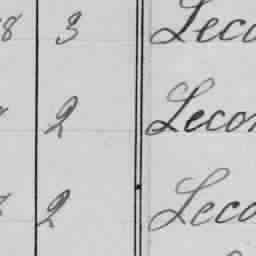 8 3 Leco
2 Lecon
2 Leco